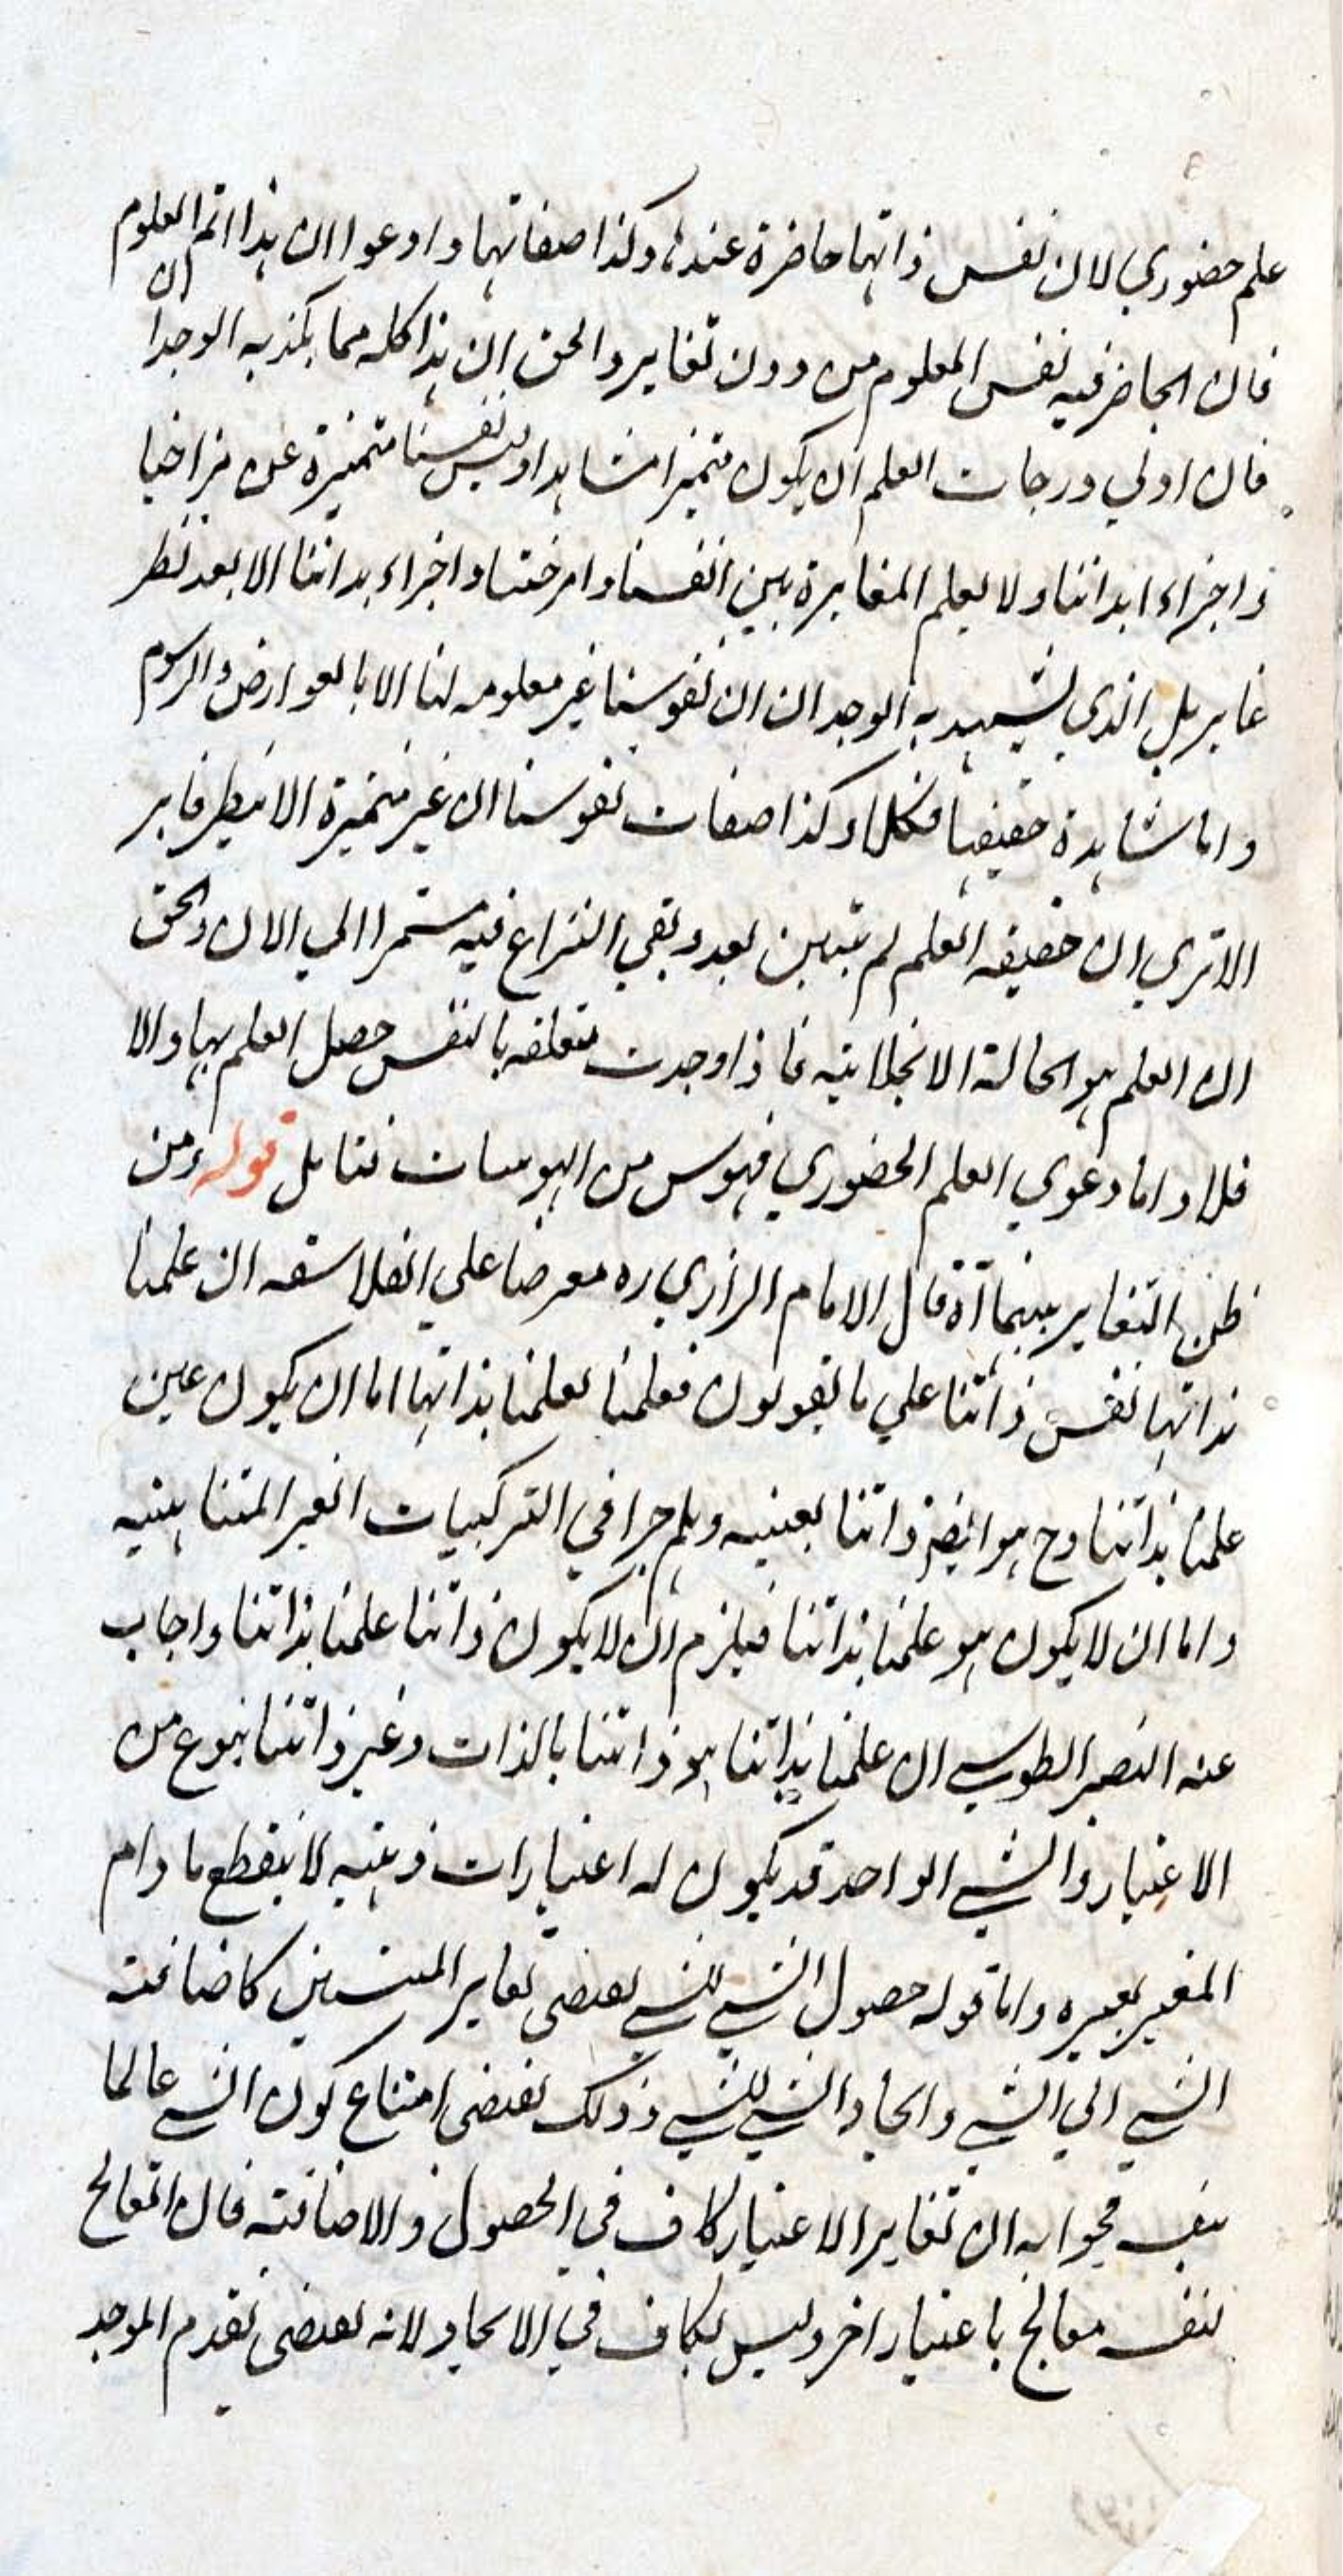 علم حضوري لان نفس ذاتها حاضرة عندها وكذا صفاتها وادعوا ان هذا اتم العلوم
فان الحاضر فيه نفس المعلوم من دون تغاير والحق ان هذا كله مما يكذبه الوجدان
فان اولي درجات العلم ان يكون متميزا مشاهدا وليس نفسنا متميزة عن مزاجنا
واجزاء ابداننا ولا يعلم المغايرة بين انفسنا وامزجتنا واجزاء بداننا الا بعد نظر
غاير بل الذي يشهد به الوجدان ان نفوسنا غير معلومه لنا الا بالعوارض والرسوم
واما مشاهدة حقيقتها فكلا وكذا صفات نفوسنا ان غير متميزة الا بنظر غاير
الا تري ان حقيقه العلم لم تتبين بعد وبقي النزاع فيه مستمرا الي الان والحق
ان العلم هو الحالة الانجلائيه فاذا وجدت متعلقه بالنفس حصل العلم بها والا
فلا واما دعوي العلم الحضوري فهوس من الهوسات فتامل قوله ومن
ظن التغاير بينهما آه قال الامام الرازي ره معرضا علي الفلاسفه ان علمنا
بذاتها نفس ذاتنا علي ما يقولون فعلمنا بعلمنا بذاتها اما ان يكون عين
علمنا بذاتنا وح هو ايضا ذاتنا بعينه وهلم جرا في التركيبات الغير المتناهيه
واما ان لا يكون هو علمنا بذاتنا فيلزم ان لا يكون ذاتنا علمنا بذاتنا واجاب
عنه النصير الطوسي ان علمنا بذاتنا هو ذاتنا بالذات وغير ذاتنا بنوع من
الاعتبار والشي الواحد قد يكون له اعتبارات ذهنيه لا ينقطع ما دام
المعتبر يعتبره واما قوله حصول الشي للشي يقتضي تغاير المنتسبين كاضافة
الشي الي الشي وايجاد الشي للشي وذلك يقتضي امتناع كون الشي عالما
بنفسه فجوابه ان تغاير الاعتبار كاف في الحصول والاضافة فان المعالج
لنفسه معالج باعتبار اخر وليس بكاف في الايجاد لانه يقتضي تقدم الموجد